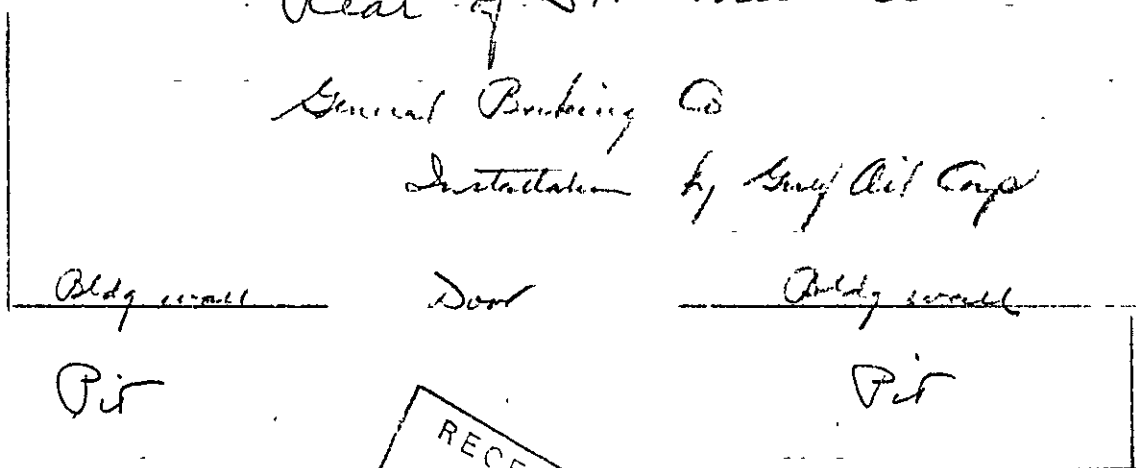 Rear of
General Co
Installation by Gulf Oil Corp
Bldg wall Door Bldg wall
Pit Pit
RECE